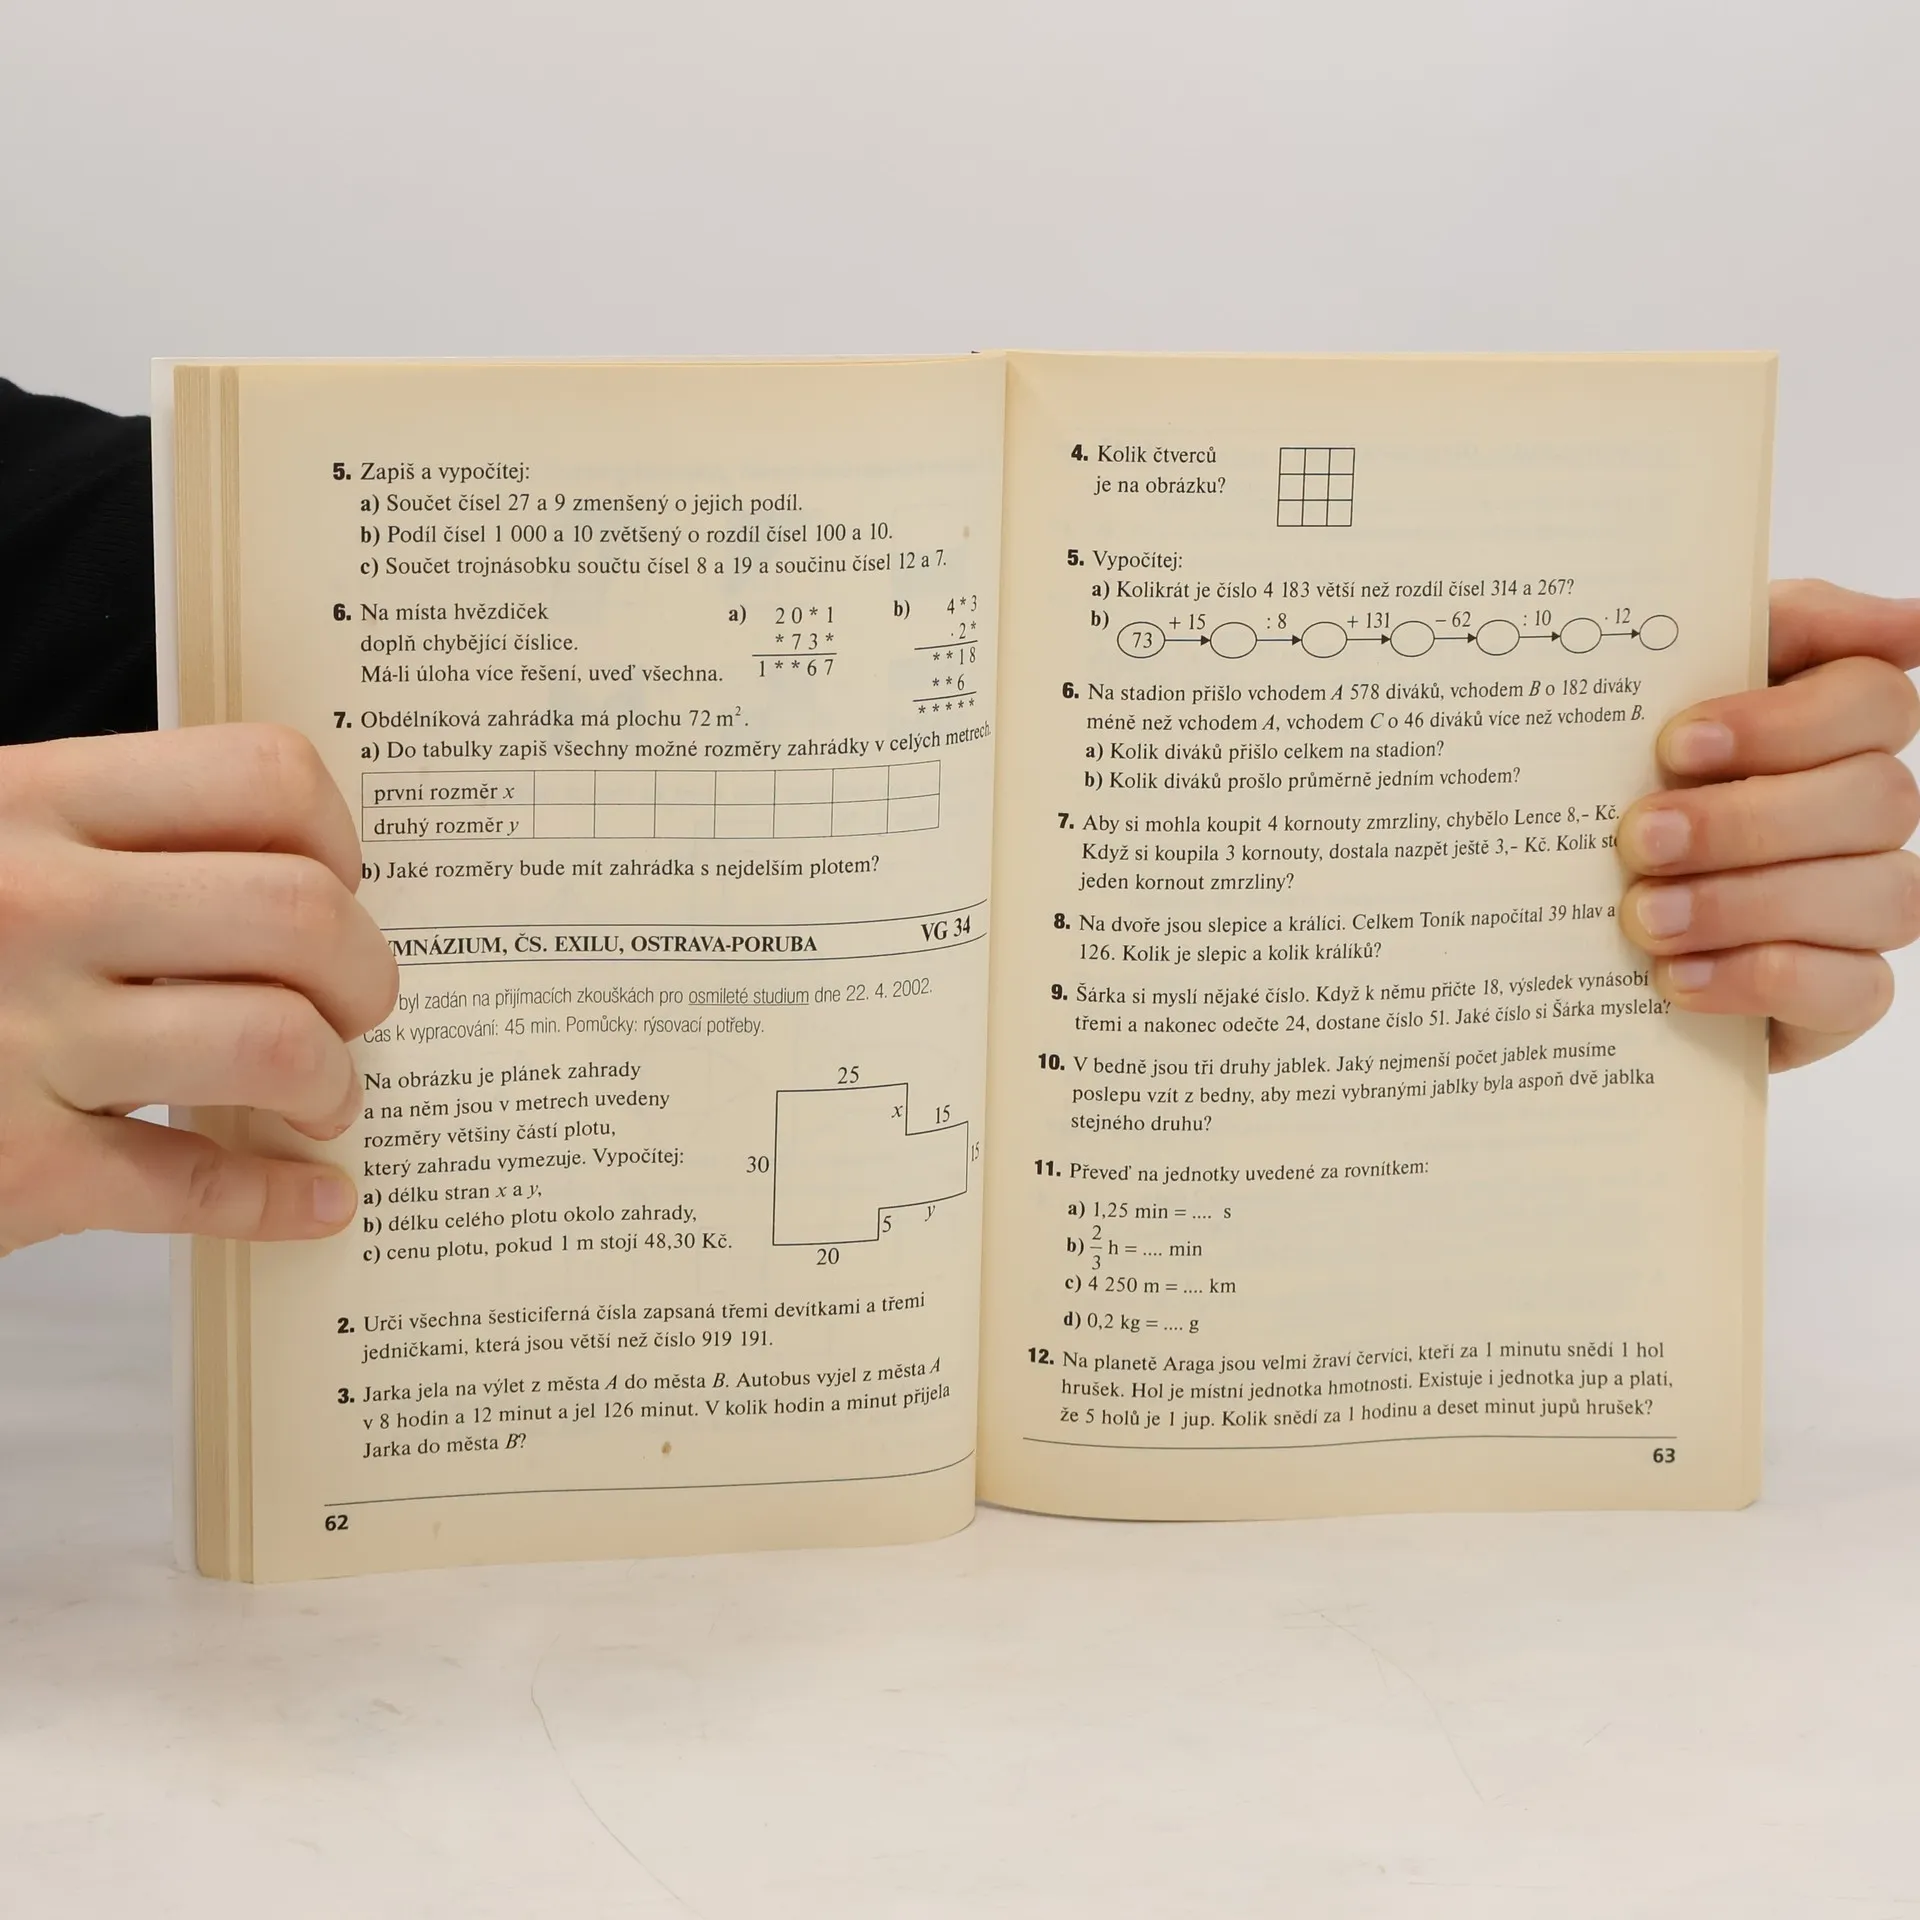 5. Zapiš a vypočítej:
a) Součet čísel 27 a 9 zmenšený o jejich podíl.
b) Podíl čísel 1 000 a 10 zvětšený o rozdíl čísel 100 a 10.
c) Součet trojnásobku součtu čísel 8 a 19 a součinu čísel 12 a 7.
6. Na místa hvězdiček
doplň chybějící číslice.
Má-li úloha více řešení, uveď všechna.
a) 2 0 * 1
* 7 3 *
1 * * 6 7
b) 4 * 3
. 2 *
* * 1 8
* * 6
* * * * *
7. Obdélníková zahrádka má plochu 72 m².
a) Do tabulky zapiš všechny možné rozměry zahrádky v celých metrech.
první rozměr x
druhý rozměr y
b) Jaké rozměry bude mít zahrádka s nejdelším plotem?
MNÁZIUM, ČS. EXILU, OSTRAVA-PORUBA VG 34
byl zadán na přijímacích zkouškách pro osmileté studium dne 22. 4. 2002.
Čas k vypracování: 45 min. Pomůcky: rýsovací potřeby.
Na obrázku je plánek zahrady
a na něm jsou v metrech uvedeny
rozměry většiny částí plotu,
který zahradu vymezuje. Vypočítej:
a) délku stran x a y,
b) délku celého plotu okolo zahrady,
c) cenu plotu, pokud 1 m stojí 48,30 Kč.
25
x 15
30 15
5 y
20
2. Urči všechna šesticiferná čísla zapsaná třemi devítkami a třemi
jedničkami, která jsou větší než číslo 919 191.
3. Jarka jela na výlet z města A do města B. Autobus vyjel z města A
v 8 hodin a 12 minut a jel 126 minut. V kolik hodin a minut přijela
Jarka do města B?
62
4. Kolik čtverců
je na obrázku?
5. Vypočítej:
a) Kolikrát je číslo 4 183 větší než rozdíl čísel 314 a 267?
b) 73 + 15 : 8 + 131 − 62 : 10 · 12
6. Na stadion přišlo vchodem A 578 diváků, vchodem B o 182 diváky
méně než vchodem A, vchodem C o 46 diváků více než vchodem B.
a) Kolik diváků přišlo celkem na stadion?
b) Kolik diváků prošlo průměrně jedním vchodem?
7. Aby si mohla koupit 4 kornouty zmrzliny, chybělo Lence 8,- Kč.
Když si koupila 3 kornouty, dostala nazpět ještě 3,- Kč. Kolik
jeden kornout zmrzliny?
8. Na dvoře jsou slepice a králíci. Celkem Toník napočítal 39 hlav a
126. Kolik je slepic a kolik králíků?
9. Šárka si myslí nějaké číslo. Když k němu přičte 18, výsledek vynásobí
třemi a nakonec odečte 24, dostane číslo 51. Jaké číslo si Šárka myslela?
10. V bedně jsou tři druhy jablek. Jaký nejmenší počet jablek musíme
poslepu vzít z bedny, aby mezi vybranými jablky byla aspoň dvě jablka
stejného druhu?
11. Převeď na jednotky uvedené za rovnítkem:
a) 1,25 min = .... s
b) 2/3 h = .... min
c) 4 250 m = .... km
d) 0,2 kg = .... g
12. Na planetě Araga jsou velmi žraví červíci, kteří za 1 minutu snědí 1 hol
hrušek. Hol je místní jednotka hmotnosti. Existuje i jednotka jup a platí,
že 5 holů je 1 jup. Kolik snědí za 1 hodinu a deset minut jupů hrušek?
63